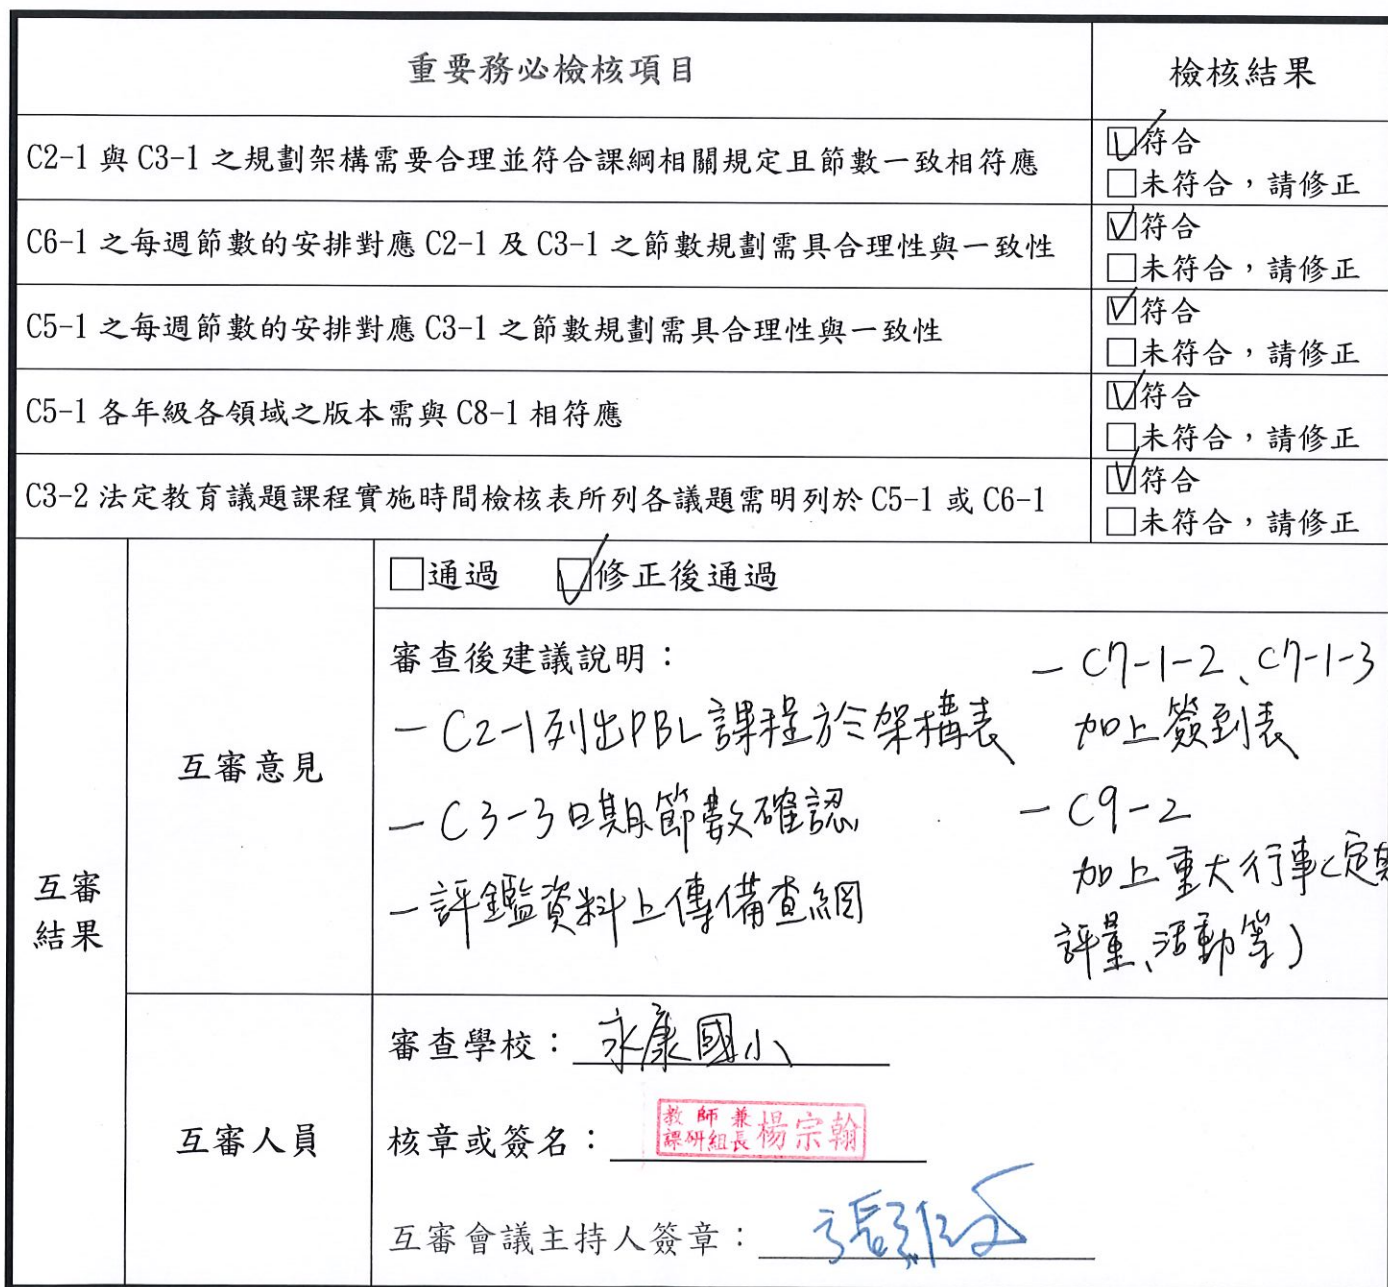 重要務必檢核項目
檢核結果
C2-1 與 C3-1 之規劃架構需要合理並符合課綱相關規定且節數一致相符應
☑符合
□未符合，請修正
C6-1 之每週節數的安排對應 C2-1 及 C3-1 之節數規劃需具合理性與一致性
☑符合
□未符合，請修正
C5-1 之每週節數的安排對應 C3-1 之節數規劃需具合理性與一致性
☑符合
□未符合，請修正
C5-1 各年級各領域之版本需與 C8-1 相符應
☑符合
□未符合，請修正
C3-2 法定教育議題課程實施時間檢核表所列各議題需明列於 C5-1 或 C6-1
☑符合
□未符合，請修正
互審
結果
互審意見
□通過 ☑修正後通過
審查後建議說明：
－C2-1列出PBL課程於架構表
－C3-3日期節數確認
－評鑑資料上傳備查網
－C7-1-2、C7-1-3
加上簽到表
－C9-2
加上重大行事(定期
評量、活動等)
互審人員
審查學校：永康國小
核章或簽名：
教師兼
課研組長 楊宗翰
互審會議主持人簽章：